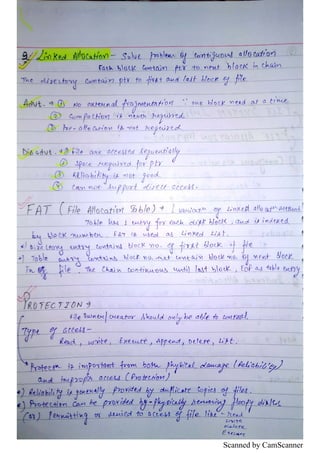 Linked Allocation - Solve Problem of Contiguous allocation
Each block Contain ptr to next block in chain
The directory Contain ptr to first and last block of file.
Advt. → ① No external fragmentation ∵ one block need at a time
② Compaction is never required
③ Pre-allocation is not required
Disadvt. → ① File are accesses Sequentially
② Space required for ptr
③ Reliability is not good
④ Can not Support direct access.
FAT (File Allocation Table) → (variation on Linked allocation Method)
Table has 1 entry for each disk block, and is indexed
by block number. FAT is used as Linked List.
•) Directory entry Contains block no. of first block of file
•) Table entry Contains block no. Contain block no. of next block
in file. The chain Continuous until last block, EOF as table entry
PROTECTION →
File Owner/Creator Should only be able to control
Type of access -
Read, write, Execute, Append, Delete, List.
* Protection is important from both physical damage (Reliability)
and improper access (Protection)
•) Reliability is generally provided by duplicate Copies of files.
•) Protection Can be provided by - Physically removing floppy disks
(or) Permitting or denied to access of file like - Read
write
Execute
Scanned by CamScanner